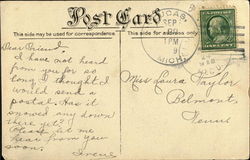 Post Card
This side may be used for correspondence. This side for address only.
Dear Friend:
I have not heard
from you for so
long I thought I
would send a
postal. Has it
snowed any down
there yet?
Please let me
hear from you
soon.
Irene
SEP
1 PM
MICH.
Miss Laura Taylor
Belmont,